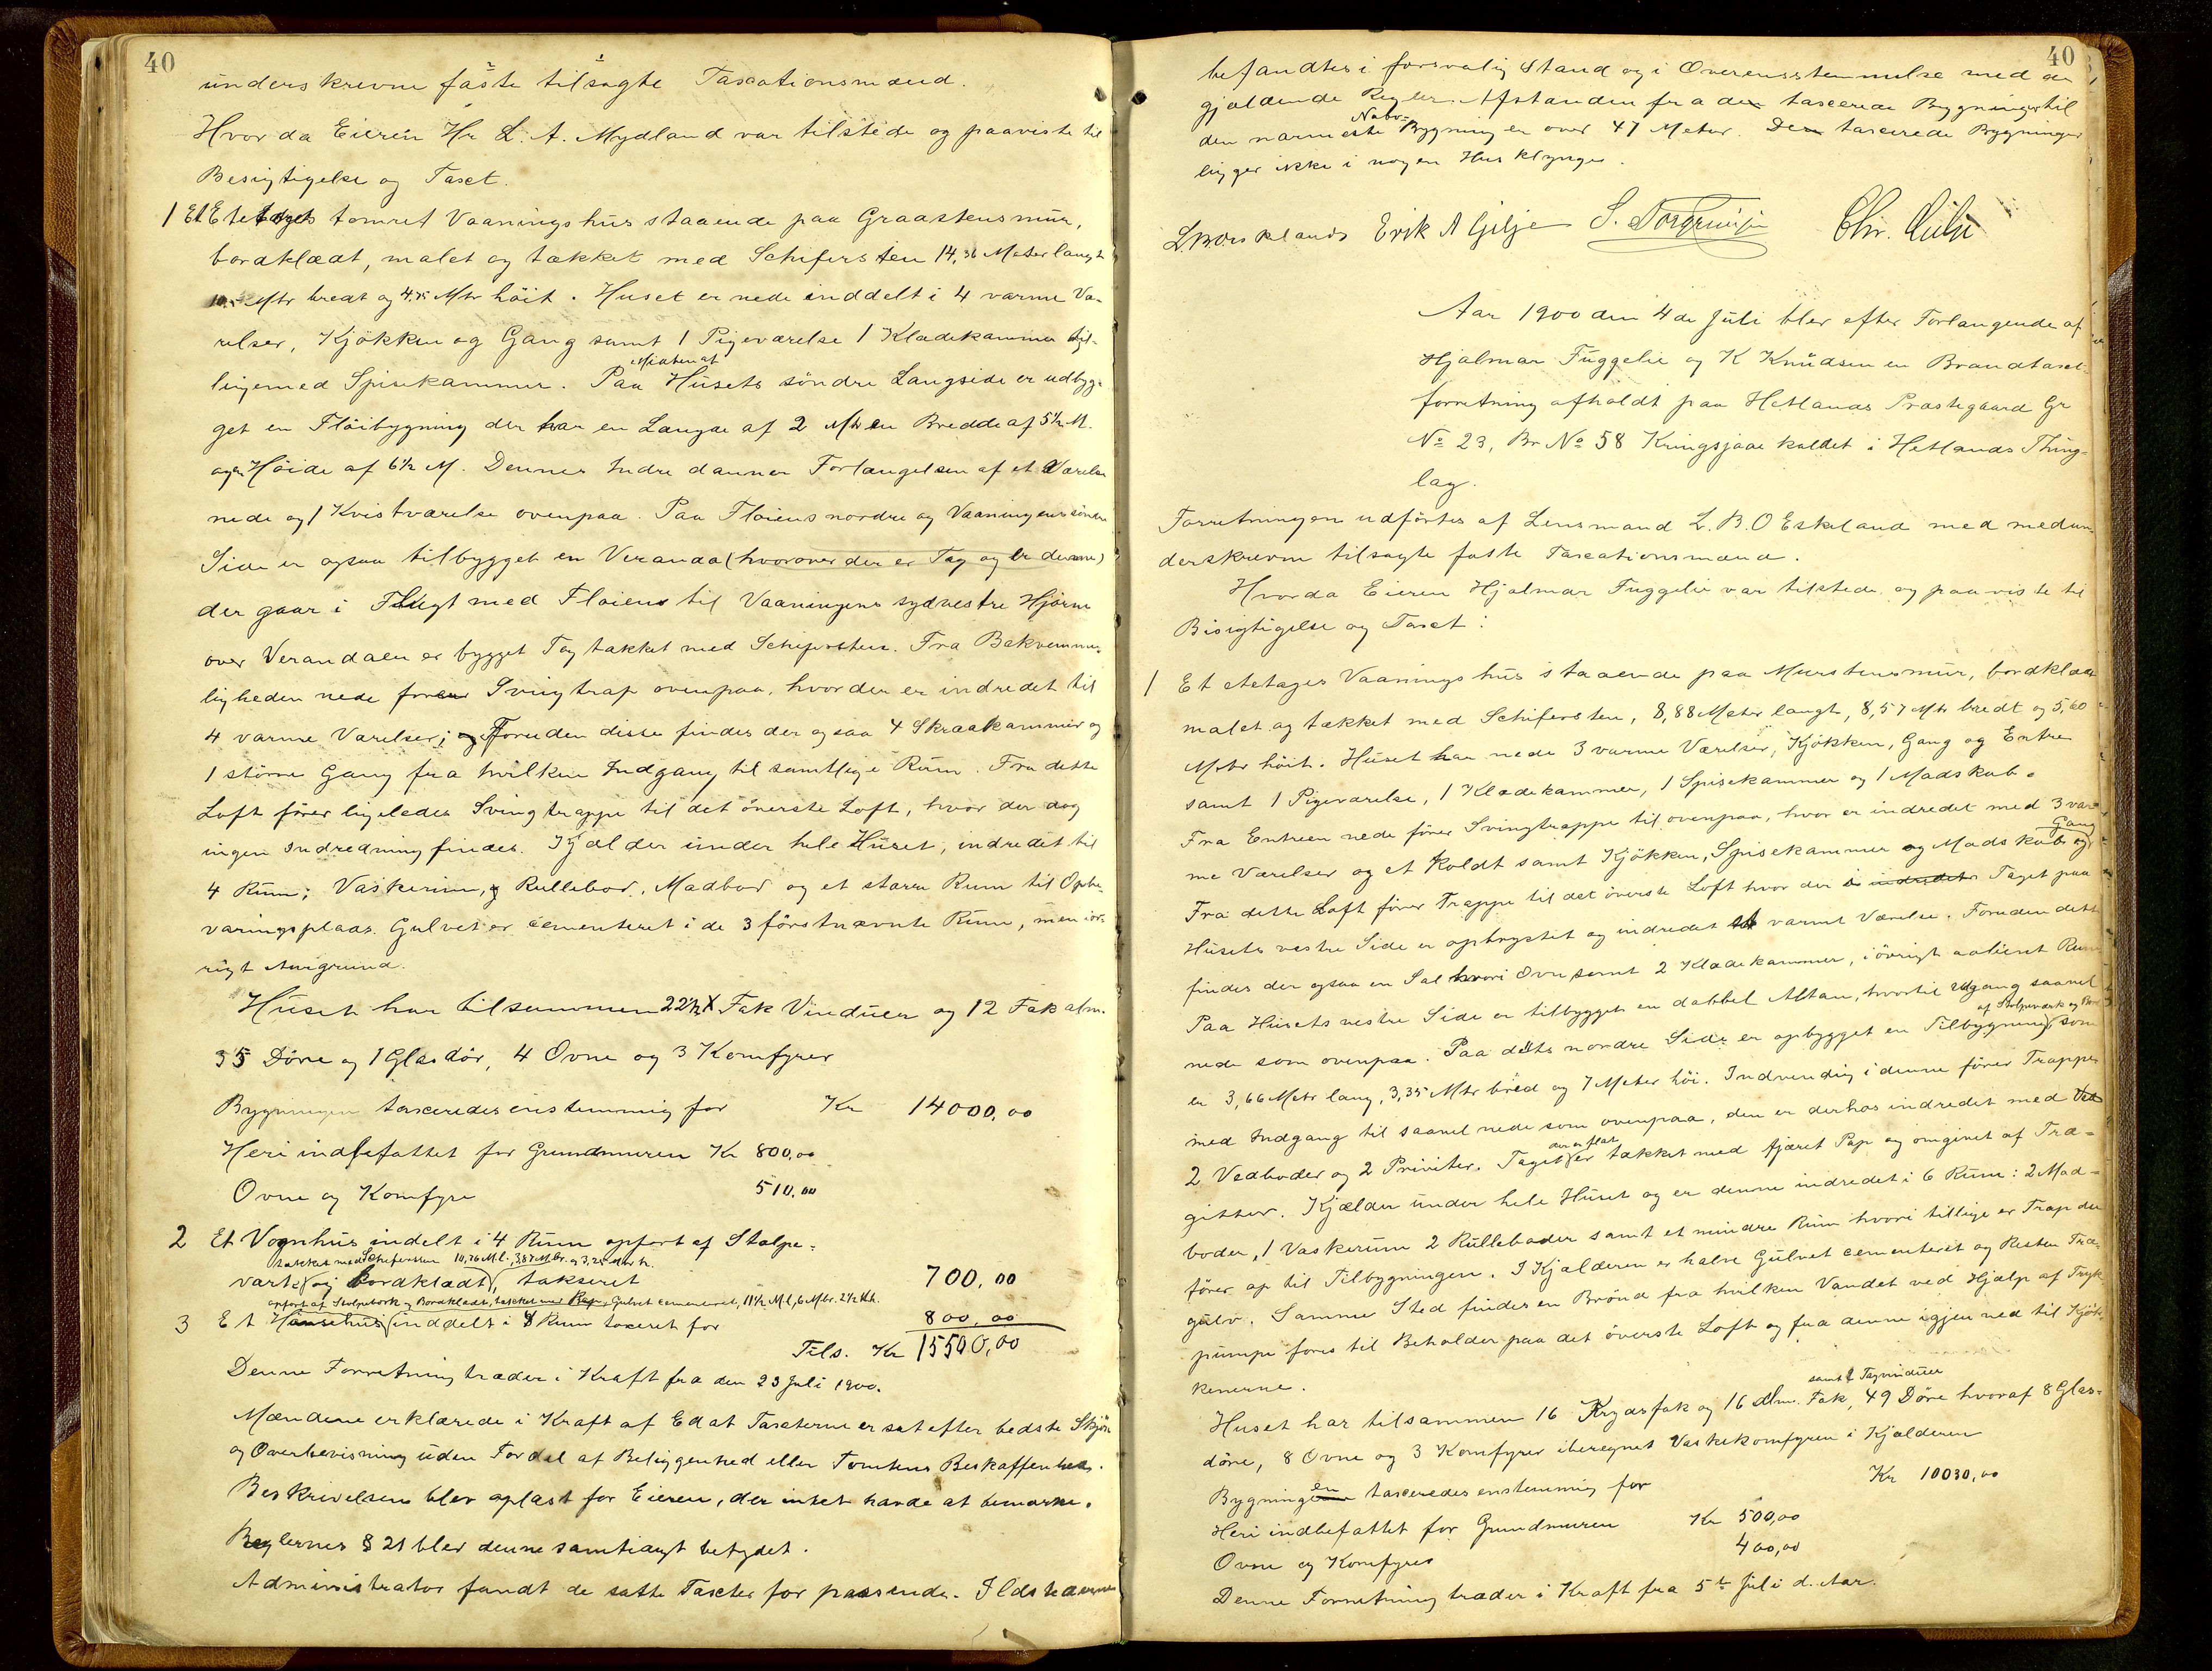 40
underskrevne faste tilsagte Taxationsmænd.
Hvor da Eieren Hr L. A. Mydland var tilstede og paaviste til
Besigtigelse og Taxt.
1 Et Etetages tømret Vaaningshus staaende paa Graastensmur,
bordklædt, malet og tækket med Schifersten 14,36 Meter langt
Mtr bredt og 4,75 Mtr höit. Huset er nede inddelt i 4 varme Væ-
relser, Kjökken og Gang samt 1 Pigeværelse 1 Klædekammer til-
ligemed Spisekammer. Paa Midten af Husets söndre Langside er udbyg-
get en Flöibygning der har en Længde af 2 Mtr en Bredde af 5½ M.
og en Höide af 6½ M. Dennes Indre danner Forlængelsen af et Værelse
nede og 1 Kvistværelse ovenpaa. Paa Flöiens nordre og Vaaningens söndre
Side er ogsaa tilbygget en Veranda (hvorover der er Tag og er denne)
der gaar i Flugt med Flöiens til Vaaningens sydvestre Hjörne
over Verandaen er bygget Tag tækket med Schifersten. Fra Bekvemme-
ligheden nede förer Svingtrap ovenpaa, hvor der er indredet til
4 varme Værelser; Foruden disse findes der ogsaa 4 Skraakammer og
1 större Gang fra hvilken Indgang til samtlige Rum. Fra dette
Loft förer ligeledes Svingtrappe til det överste Loft, hvor der dog
ingen Indredning findes. Kjælder under hele Huset, indredet til
4 Rum; Vaskerum, Rullebod, Madbod og et större Rum til Opbe-
varingsplads. Gulvet er cementeret i de 3 förstnævnte Rum, men iöv-
rigt Aurgrund.
Huset har tilsammen 22½ X Fak Vinduer og 12 Fak alm.
35 Döre og 1 Glasdör, 4 Ovne og 3 Komfyrer
Bygningen taxeredes enstemmig for Kr 14000,00
Heri indbefattet for Grundmuren Kr 800,00
Ovne og Komfyre 510,00
2 Et Vognhus indelt i 4 Rum opfört af Stolpe-
tækket med Schifersten 10,76 M l., 3,87 M br. og 3,25 Mtr h.
værk og bordklædt, takseret 700,00
opfört af Stolpeværk og Bordklædt, tækket med Pap, Gulvet cementeret, 11½ M l, 6 M br. 2½ M h.
3 Et Hönsehus inddelt i 8 Rum taxeret for 800,00
Tils. Kr 15500,00
Denne Forretning træder i Kraft fra den 23 Juli 1900.
Mændene erklærede i Kraft af Ed at Taxterne er sat efter bedste Skjön
og Overbevisning uden Fordel af Beliggenhed eller Tomtens Beskaffenhed.
Beskrivelsen blev oplæst for Eieren, der intet havde at bemærke.
Reglernes § 21 blev denne samtidigt betydet.
Administrator fandt de satte Taxter for passende. Ildstederne
40
befandtes i forsvarlig Stand og i Overensstemmelse med de
gjældende Regler. Afstanden fra den taxerede Bygninger til
den nærmeste Nabo-Bygning er over 47 Meter. De taxerede Bygninger
ligger ikke i nogen Husklynge.
L. B. O. Eskeland Erik A Gilje S. Torgersen Chr. Gilje
Aar 1900 den 4de Juli blev efter Forlangende af
Hjalmar Fuggelie og K Knudsen en Brandtaxt-
forretning afholdt paa Hetlands Præstegaard Gr
No 23, Br No 58 Kringsjaae kaldet i Hetlands Thing-
lag.
Forretningen udförtes af Lensmand L. B. O Eskeland med medun-
derskrevne tilsagte faste Taxationsmænd.
Hvor da Eieren Hjalmar Fuggelie var tilstede og paaviste til
Bisigtigelse og Taxt:
1 Et etetages Vaaningshus staaende paa Murstensmur, bordklædt
malet og tækket med Schifersten, 8,88 Meter langt, 8,57 Mtr bredt og 5,60
Metr höit. Huset har nede 3 varme Værelser, Kjökken, Gang og Entre
samt 1 Pigeværelse, 1 Klædekammer, 1 Spisekammer og 1 Madskab.
Fra Entreen nede förer Svingtrappe til ovenpaa, hvor er indredet med 3 var-
me Værelser og et koldt samt Kjökken, Spisekammer og Madskab og Gang
Fra dette Loft förer Trappe til det överste Loft hvor der i indredet Taget paa
Husets vestre Side er opbrystet og indredet et varmt Værelse. Foruden dette
findes der ogsaa en Sal hvori Ovn, samt 2 Klædekammer, iövrigt aabent Rum
Paa Husets vestre Side er tilbygget en dobbel Altan, hvortil Udgang saavel
nede som ovenpaa. Paa dets nordre Side er opbygget en Tilbygning af Stolpeværk og som
er 3,66 Metr lang, 3,35 Mtr bred og 7 Meter höi. Indvendig i denne förer Trapper
med Indgang til saavel nede som ovenpaa, den er derhos indredet med
2 Vedboder og 2 Priviter. Taget der er flat er tækket med tjæret Pap og omgivet af Træ-
gitter. Kjælder under hele Huset og er denne indredet i 6 Rum: 2 Mad-
boder, 1 Vaskerum 2 Rulleboder samt et mindre Rum hvori tillige er Trap der
förer op til Tilbygningen. I Kjælderen er halve Gulvet cementeret og Resten Træ-
gulv. Samme Sted findes en Brönd fra hvilken Vandet ved Hjælp af Tryk-
pumpe föres til Beholder paa det överste Loft og fra denne igjen ned til Kjök-
kenerne.
Huset har tilsammen 16 Krydsfak og 16 alm. Fak, samt Tagvinduer 49 Döre hvoraf 8 Glas-
döre, 8 Ovne og 3 Komfyrer iberegnet Vaskekomfyren i Kjælderen
Bygningen taxeredes enstemmig for Kr 10030,00
Heri indbefattet for Grundmuren Kr 500,00
Ovne og Komfyres 400,00
Denne Forretning træder i Kraft fra 5te Juli d. Aar.